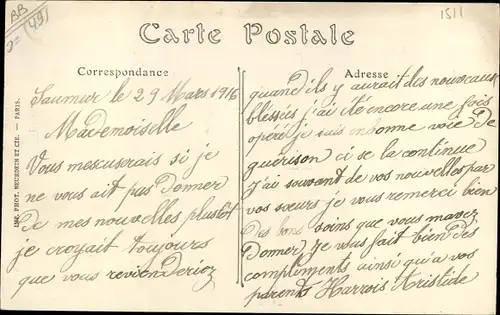 BB
(49)
1511
Carte Postale
Correspondance
Adresse
IMP. PHOT. NEURDEIN ET CIE. — PARIS.
Saumur le 29 Mars 1916
Mademoiselle
Vous mescuserais si je
ne vous ait pas Donner
De mes nouvelles plustôt
je croyait toujours
que vous reviendériez
quand ils y aurait des nouveaux
bléssés j'ai été encore une fois
opéré je suis enbonne voie De
guérison ci se la continue
j'ai souvant de vos nouvelles par
vos sœurs je vous remerci bien
Des bons soins que vous mavez
Donner, je vous fait bien des
compliments ainsi qu'a vos
parents Harrois Aristide